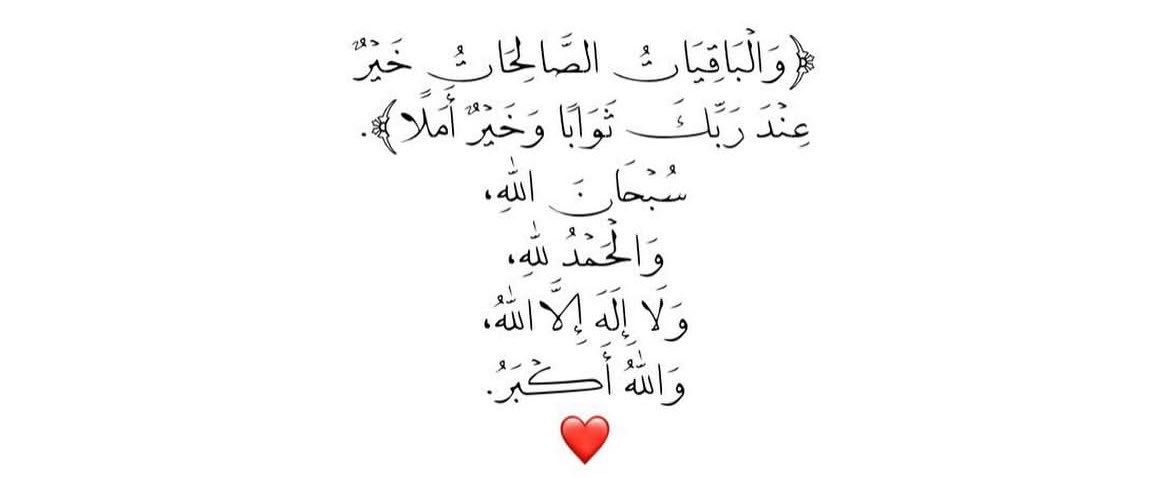 ﴿وَالْبَاقِيَاتُ الصَّالِحَاتُ خَيْرٌ
عِنْدَ رَبِّكَ ثَوَابًا وَخَيْرٌ أَمَلًا﴾.
سُبْحَانَ اللهِ،
وَالْحَمْدُ لِلهِ،
وَلَا إِلَهَ إِلَّا اللهُ،
وَاللهُ أَكْبَرُ.